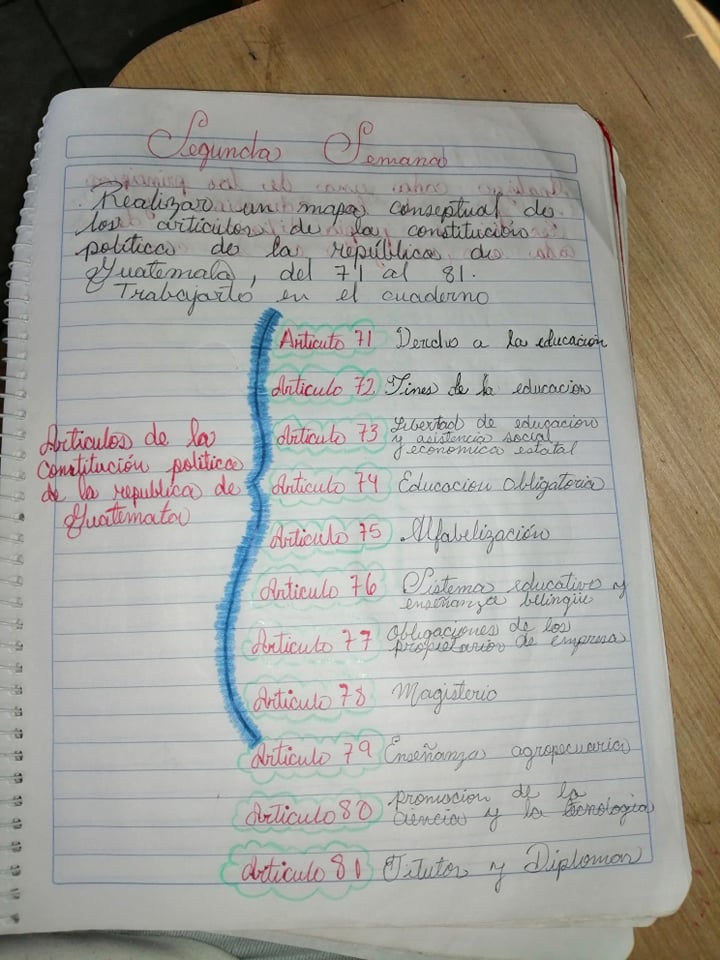 Segunda Semana
. Realizar un mapa conseptual de
los artículos de la constitución
política de la república de
Guatemala, del 71 al 81.
Trabajarlo en el cuaderno
Artículos de la
Constitución politica
de la republica de
Guatemala
Articulo 71 Dercho a la educación
Articulo 72 Fines de la educacion
Articulo 73 Libertad de educacion
y asistencia social
y economica estatal
Articulo 74 Educacion obligatoria
Articulo 75 Alfabelización
Articulo 76 Sistema educativo y
enseñanza bilingüe
Articulo 77 Obligaciones de los
propietarios de empresa
Articulo 78 Magisterio
Articulo 79 Enseñanza agropecuaria
Articulo 80 promocion de la
ciencia y la tecnologia
Articulo 81 Titulos y Diplomas